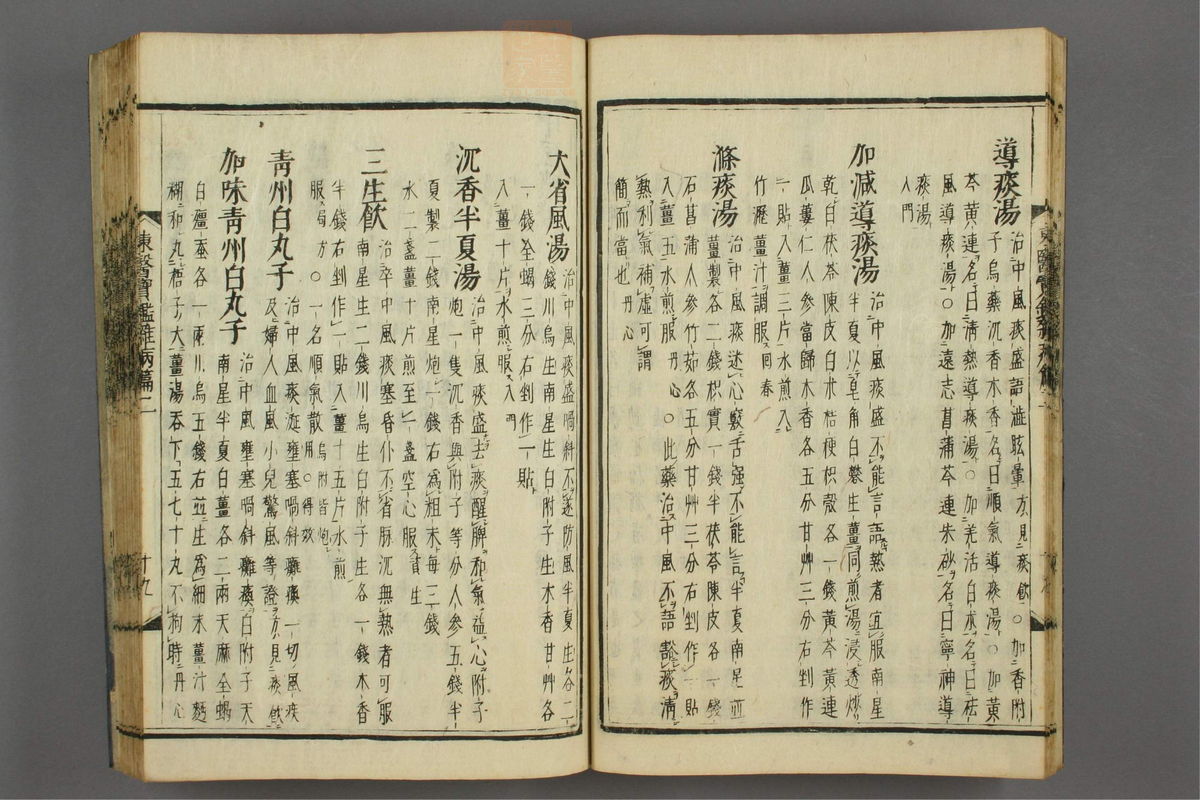 導痰湯 治中風痰盛語澁眩暈方見痰飮○加香附
子烏藥沉香木香名曰順氣導痰湯○加黃
芩黃連名曰淸熱導痰湯○加羌活白朮名曰祛
風導痰湯○加遠志菖蒲芩連朱砂名曰寧神導
痰湯
入門
加减導痰湯 治中風痰盛不能言語熱者宜服南星
半夏以皂角白礬生薑同煎湯浸透炒
乾白茯苓陳皮白朮桔梗枳殼各一錢黃芩黃連
瓜蔞仁人參當歸木香各五分甘艸三分右剉作
一貼入薑三片水煎入
竹瀝薑汁調服 回春
滌痰湯 治中風痰迷心竅舌强不能言半夏南星並
薑製各二錢枳實一錢半茯苓陳皮各一錢
石菖蒲人參竹茹各五分甘艸三分右剉作一貼
入薑五水煎服 丹心○此藥治中風不語豁痰淸
熱利氣補虛可謂
簡而當也 丹心
大省風湯 治中風痰盛喎斜不遂防風半夏生各二
錢川烏生南星生白附子生木香甘艸各
一錢全蝎三分右剉作一貼
入薑十片水煎服 入門
沉香半夏湯 治中風痰盛去痰醒脾和氣益心附子
炮一隻沉香與附子等分人參五錢半
夏製二錢南星炮一錢右爲粗末每三錢
水二盞薑十片煎至一盞空心服 資生
三生飮 治卒中風痰塞昏仆不省脉沉無熱者可服
南星生二錢川烏生白附子生各一錢木香
半錢右剉作一貼入薑十五片水煎
服 局方○一名順氣散 烏附皆炮用○得效
靑州白丸子 治中風痰涎壅塞喎斜癱瘓一切風痰
及婦人血風小兒驚風等證方見痰飮
加味靑州白丸子 治中風壅塞喎斜癱瘓白附子天
南星半夏白薑各二兩天麻全蝎
白殭蚕各一兩川烏五錢右並生爲細末薑汁麪
糊和丸梧子大薑湯吞下五七十丸不拘時 丹心
東醫寶鑑雜病篇二
十九